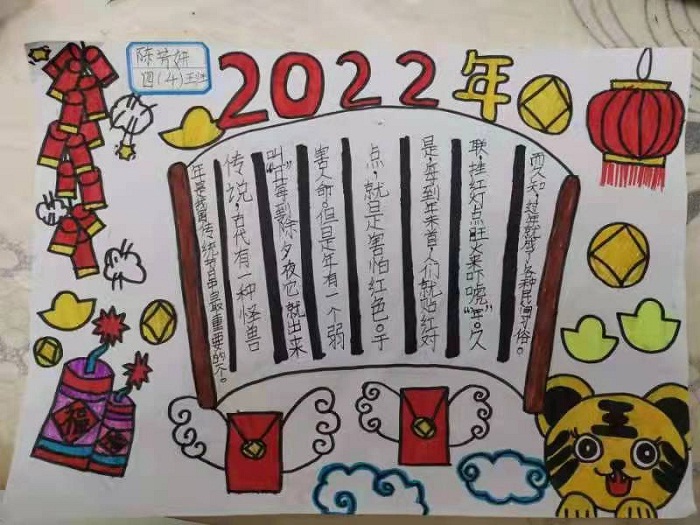 2022年
四(4)
年是我国传统节日中最重要的个。
传说，古代有一种怪兽
叫“年”每到除夕夜它就出来
害人命。但是年有一个弱
点，就是害怕红色。于
是，每到年末首，人们就贴红对
联，挂红灯点旺火来吓唬“年”。久
而久知，过年就成了各种民间习俗。
福
福
王